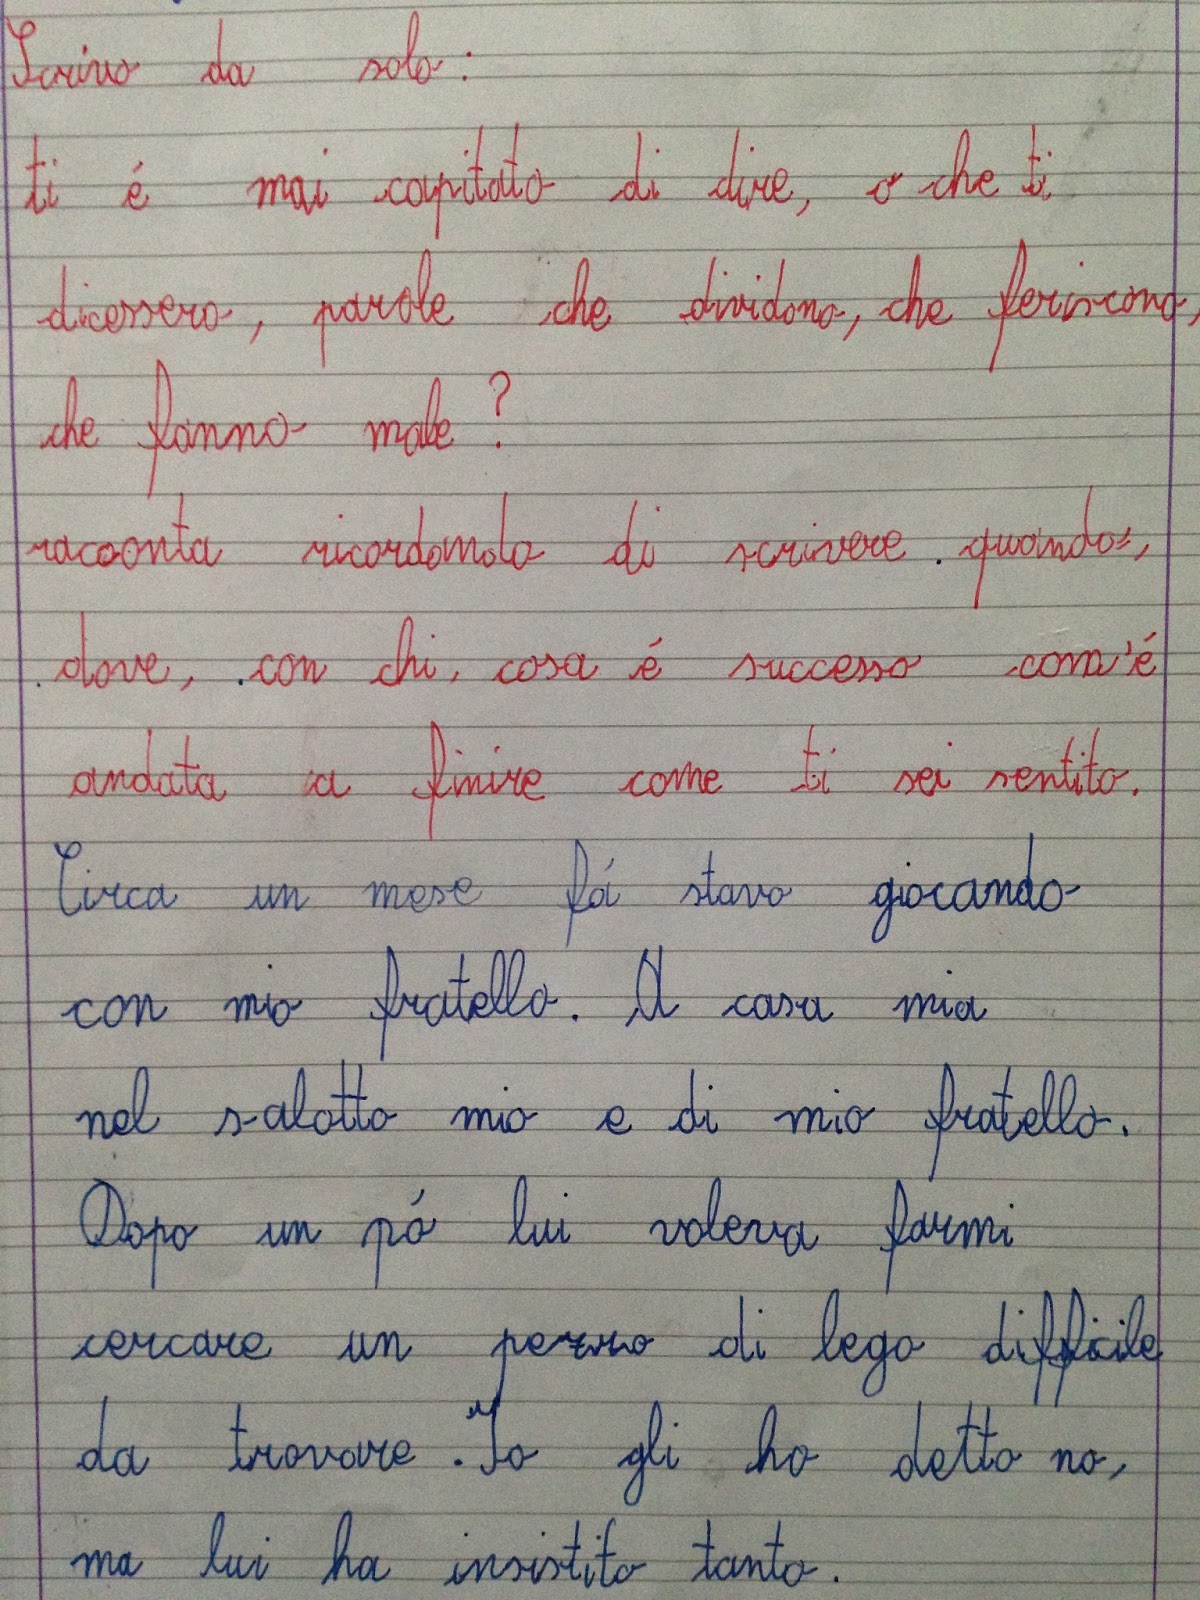 Scrivo da solo:
ti é mai capitato di dire, o che ti
dicessero, parole che dividono, che feriscono,
che fanno male?
racconta ricordando di scrivere quando,
dove, con chi, cosa é successo com'é
andata a finire come ti sei sentito.
Circa un mese fá stavo giocando
con mio fratello. A casa mia
nel salotto mio e di mio fratello.
Dopo un pó lui voleva farmi
cercare un pezzo di lego difficile
da trovare. Io gli ho detto no,
ma lui ha insistito tanto.